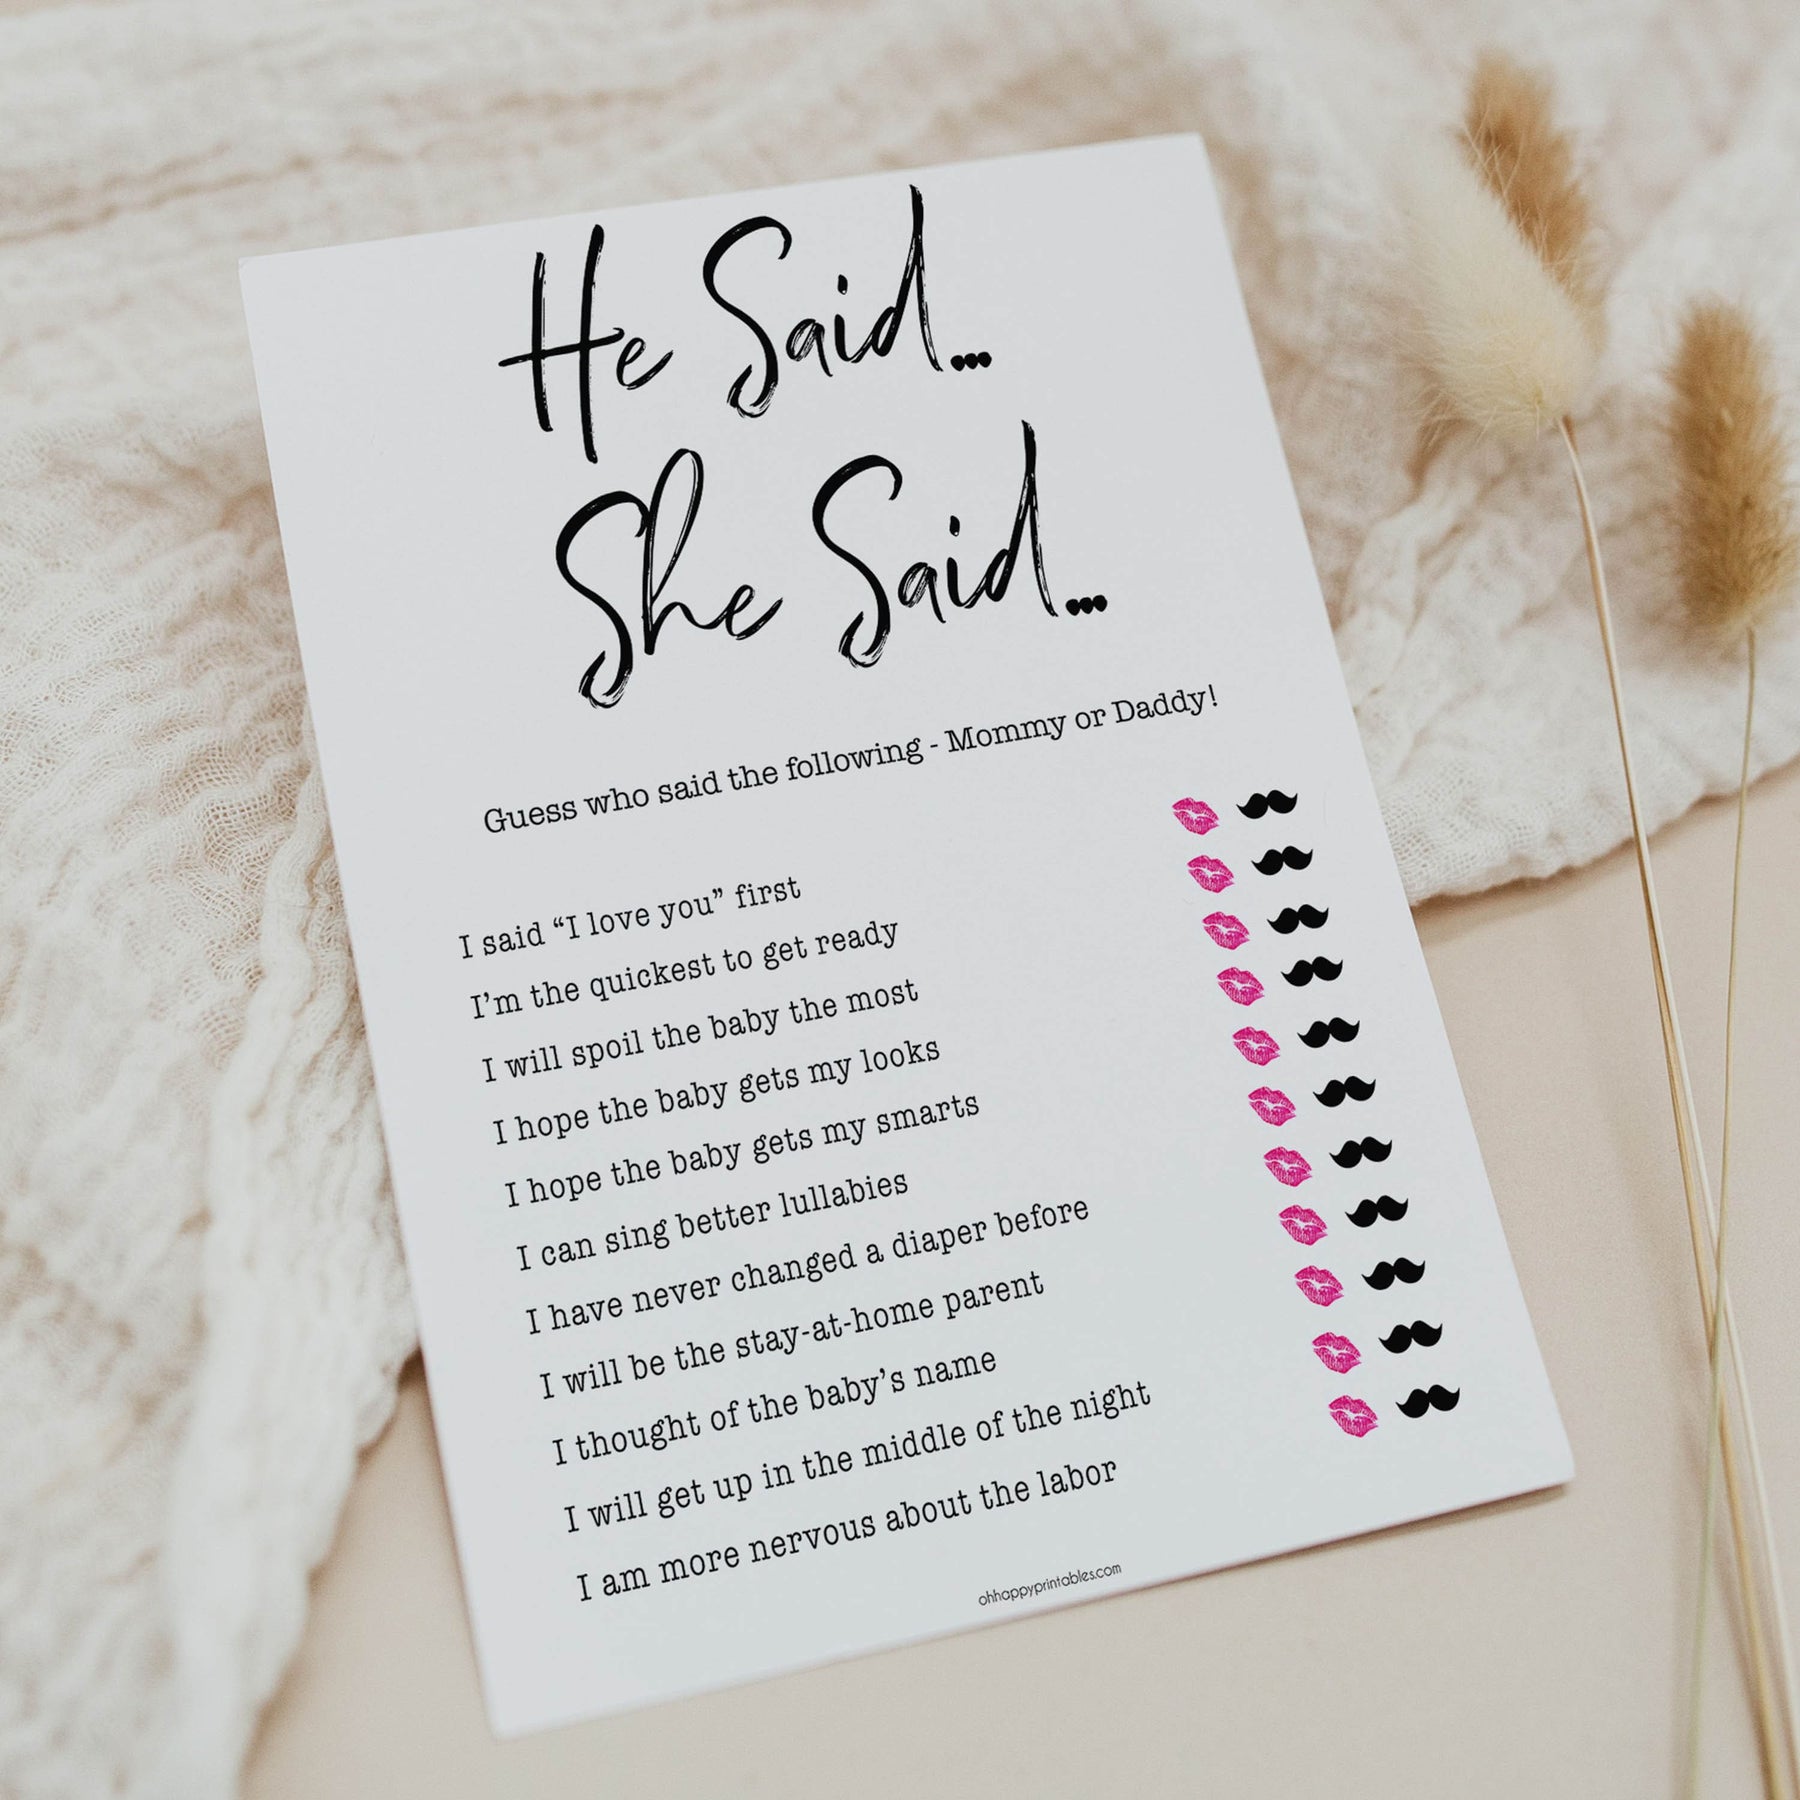 He Said...
She Said...
Guess who said the following - Mommy or Daddy!
I said “I love you” first
I’m the quickest to get ready
I will spoil the baby the most
I hope the baby gets my looks
I hope the baby gets my smarts
I can sing better lullabies
I have never changed a diaper before
I will be the stay-at-home parent
I thought of the baby’s name
I will get up in the middle of the night
I am more nervous about the labor
ohhappyprintables.com